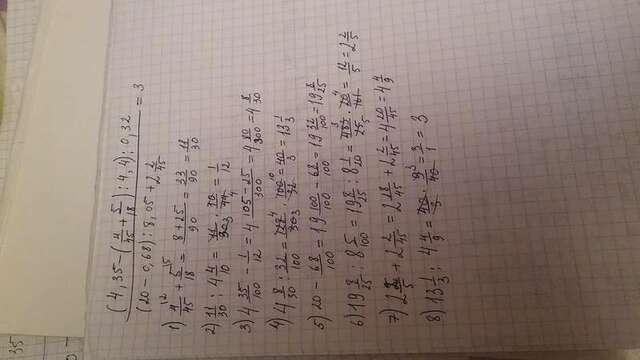 35
(4,35-(4/45+5/18):4,4):0,32
(20-0,68):8,05+2 2/45 = 3
1) 4/45 + 5/18 = 8+25/90 = 33/90 = 11/30
2) 11/30 : 4 4/10 = 11/30 · 10/44 = 1/12
3) 4 35/100 - 1/12 = 4 105-25/300 = 4 80/300 = 4 8/30
4) 4 8/30 : 32/100 = 128/30 · 100/32 = 40/3 = 13 1/3
5) 20 - 68/100 = 19 100/100 - 68/100 = 19 32/100 = 19 8/25
6) 19 8/25 : 8 5/100 = 19 8/25 : 8 1/20 = 483/25 · 20/161 = 12/5 = 2 2/5
7) 2 2/5 + 2 2/45 = 2 18/45 + 2 2/45 = 4 20/45 = 4 4/9
8) 13 1/3 : 4 4/9 = 40/3 · 9/40 = 3/1 = 3